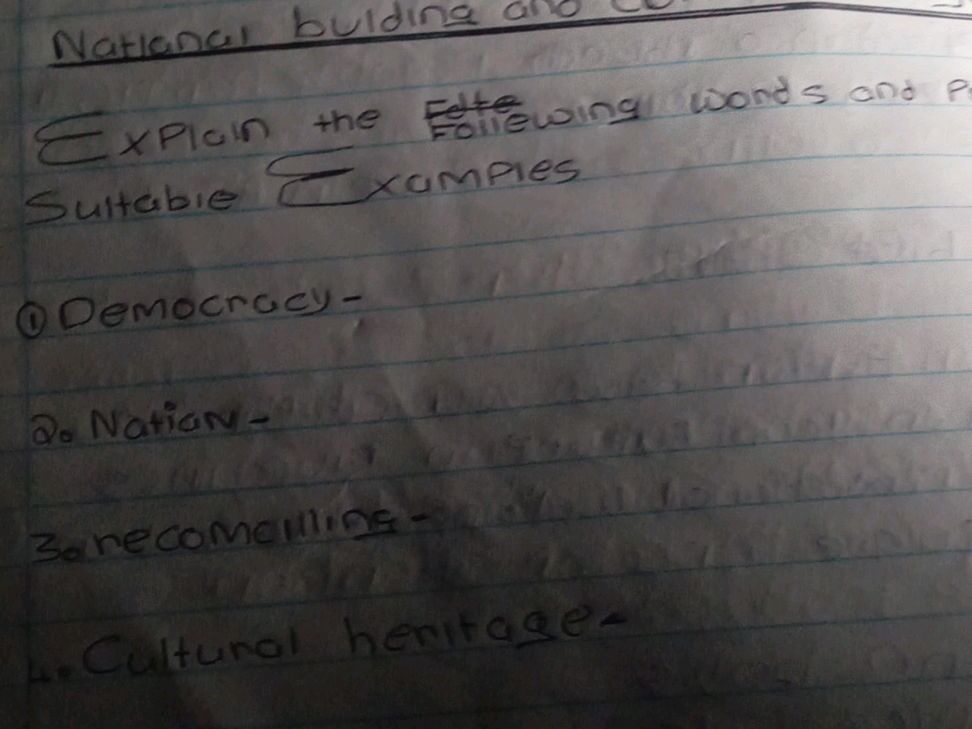 National bulding and
Explain the Follewing words and
Suitable Examples
① Democracy-
2. Nation-
3. recomciling-
4. Cultural heritage-